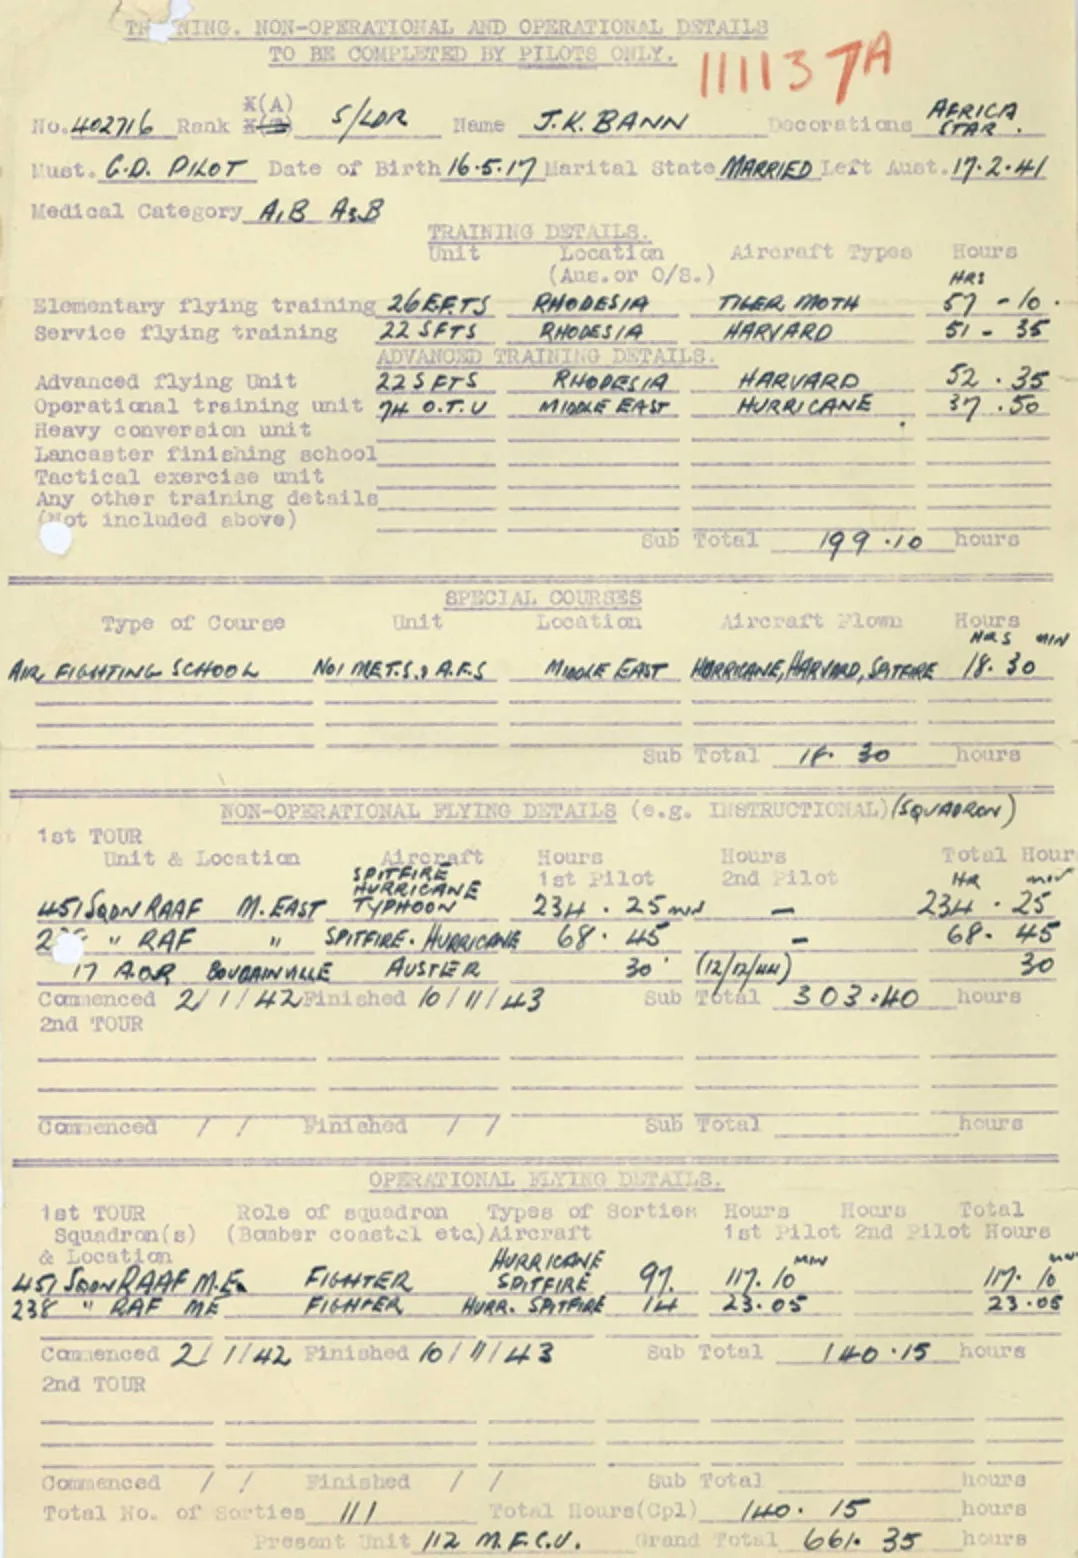 TRAINING. NON-OPERATIONAL AND OPERATIONAL DETAILS
TO BE COMPLETED BY PILOTS ONLY.
111137A
No. 402716 Rank X(A) S/LDR Name J.K. BANN Decorations AFRICA STAR.
Must. G.D. PILOT Date of Birth 16.5.17 Marital State MARRIED Left Aust. 17.2.41
Medical Category A1B A3B
TRAINING DETAILS.
Unit Location Aircraft Types Hours
(Aus. or O/S.) HRS
Elementary flying training 26 E.F.T.S RHODESIA TIGER MOTH 57 - 10.
Service flying training 22 SFTS RHODESIA HARVARD 51 - 35
ADVANCED TRAINING DETAILS.
Advanced flying Unit 22 SFTS RHODESIA HARVARD 52.35
Operational training unit 74 O.T.U MIDDLE EAST HURRICANE 37.50
Heavy conversion unit
Lancaster finishing school
Tactical exercise unit
Any other training details
(Not included above)
Sub Total 199.10 hours
SPECIAL COURSES
Type of Course Unit Location Aircraft Flown Hours
HRS MIN
AIR FIGHTING SCHOOL No1 M.E.T.S. & A.F.S MIDDLE EAST HURRICANE, HARVARD, SPITFIRE 18.30
Sub Total 18.30 hours
NON-OPERATIONAL FLYING DETAILS (e.g. INSTRUCTIONAL) (SQUADRON)
1st TOUR
Unit & Location Aircraft Hours Hours Total Hour
1st Pilot 2nd Pilot HR MIN
451 SQDN RAAF M. EAST SPITFIRE HURRICANE TYPHOON 234.25 MIN - 234.25
" RAF " SPITFIRE. HURRICANE 68.45 - 68.45
17 A.O.P. BOUGAINVILLE AUSTER 30' (12/12/44) 30
Commenced 2/1/42 Finished 10/11/43 Sub Total 303.40 hours
2nd TOUR
Commenced / / Finished / / Sub Total hours
OPERATIONAL FLYING DETAILS.
1st TOUR Role of squadron Types of Sorties Hours Hours Total
Squadron(s) (Bomber coastal etc.) Aircraft 1st Pilot 2nd Pilot Hours
& Location
451 SQDN RAAF M.E. FIGHTER HURRICANE SPITFIRE 97. 117.10 MIN 117.10 MIN
238 " RAF ME FIGHTER HURR. SPITFIRE 14 23.05 23.05
Commenced 2/1/42 Finished 10/11/43 Sub Total 140.15 hours
2nd TOUR
Commenced / / Finished / / Sub Total hours
Total No. of Sorties 111 Total Hours(Opl) 140.15 hours
Present Unit 112 M.F.C.U. Grand Total 661.35 hours